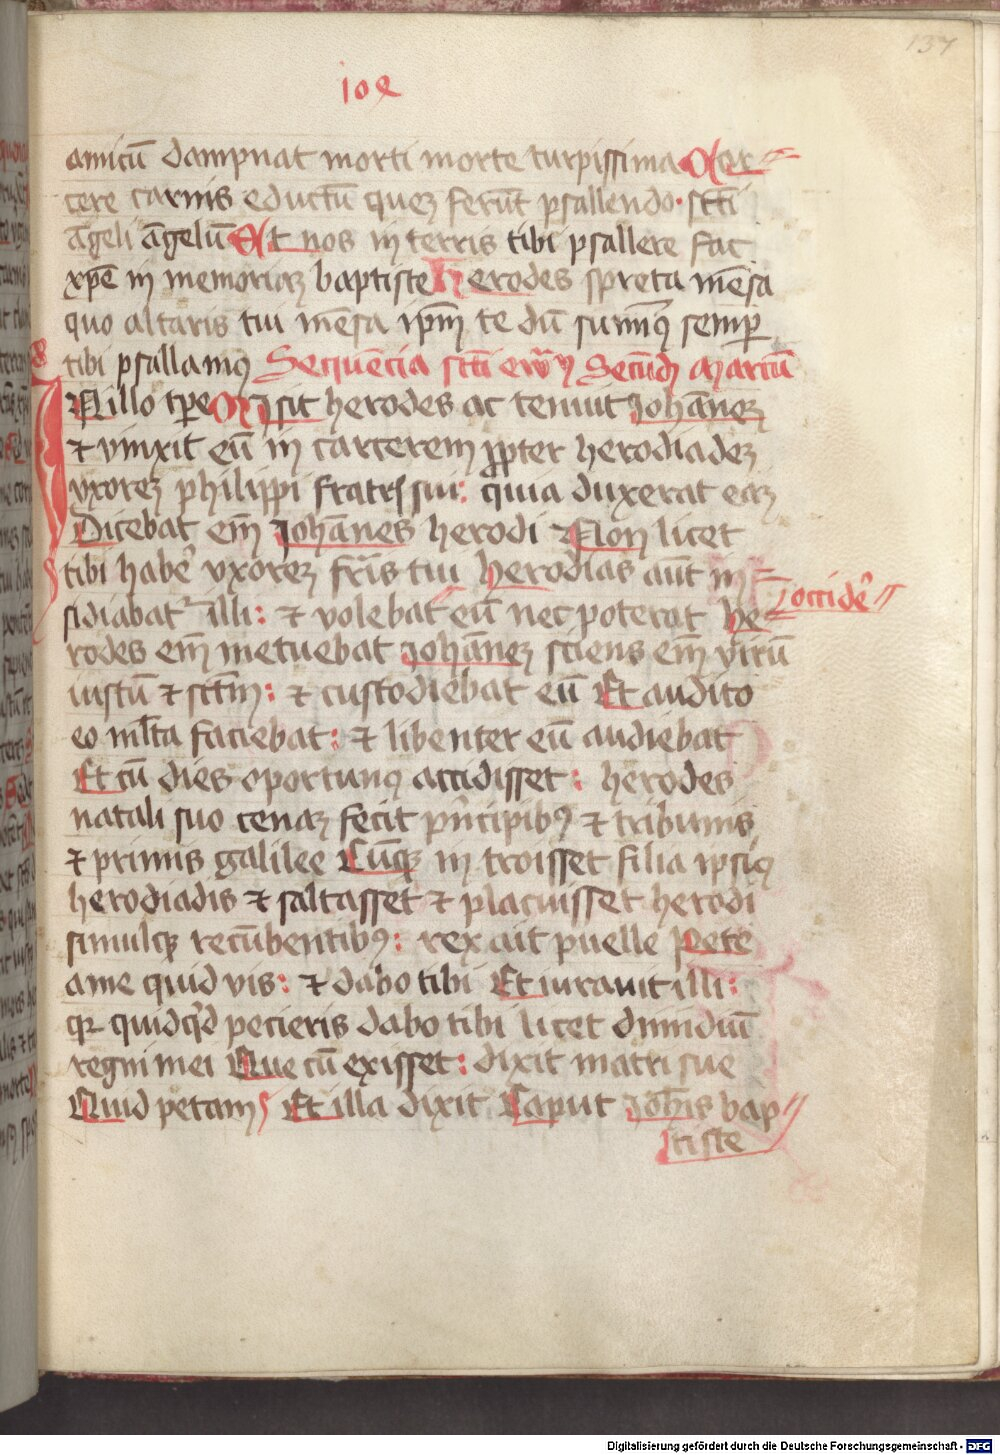 137
108
amicū dampnat morti morte turpissima
cere carnis eductū quez ferūt psallendo · scti
āgeli āgelū Et nos in terris tibi psallere fac
xp̄e in memoriaz baptiste herodes spreta mēsa
quo altaris tui mēsa ip̄m te dū sumimꝰ semp
tibi psallamꝰ Sequēcia scti Secūdz Marcū
In illo tpe Misit herodes ac tenuit Johānez
⁊ vinxit eū in carcerem ꝓpter herodiadez
vxorez philippi fratris sui: quia duxerat eaz
Dicebat em̄ Johānes herodi Non licet
tibi habe vxorez fr̄is tui herodias aūt in
sidiabat illi: ⁊ volebat eū nec poterat he
occide
rodes em̄ metuebat Johānez sciens em̄ virū
iustū ⁊ sctm̄: ⁊ custodiebat eū Et audito
eo ml̄ta faciebat: ⁊ libenter eū audiebat
Et cū dies oportunꝰ accidisset: herodes
natali suo cenaz fecit pncipibꝰ ⁊ tribunis
⁊ primis galilee Cūqz in troisset filia ipsiꝰ
herodiadis ⁊ saltasset ⁊ placuisset herodi
simulqz recūbentibꝰ: rex ait puelle Pete
a me quid vis: ⁊ dabo tibi Et iurauit illi:
qꝛ quidqd pecieris dabo tibi licet dimidiū
regni mei Que cū exisset: dixit matri sue
Quid petam Et illa dixit Caput Joh̄is bap
tiste
Digitalisierung gefördert durch die Deutsche Forschungsgemeinschaft - DFG